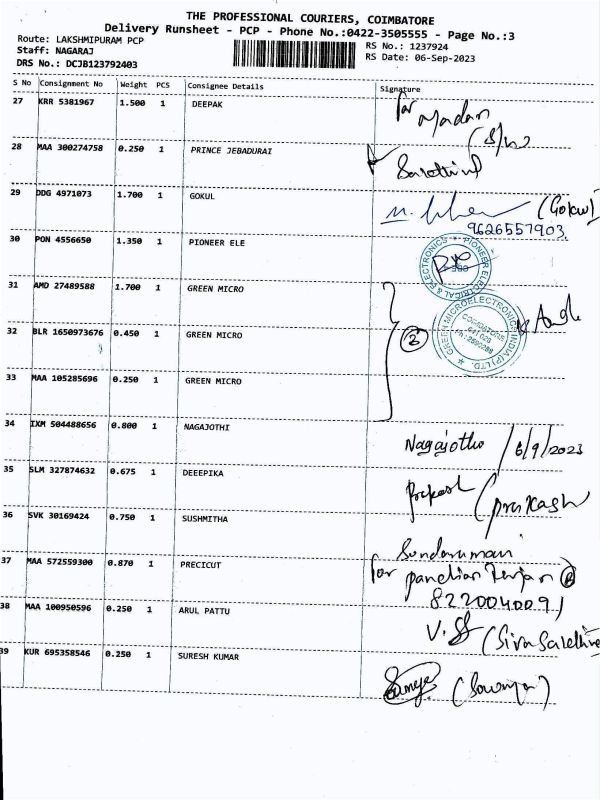 THE PROFESSIONAL COURIERS, COIMBATORE
Delivery Runsheet - PCP - Phone No.:0422-3505555 - Page No.:3
Route: LAKSHMIPURAM PCP
Staff: NAGARAJ
DRS No.: DCJB123792403
RS No.: 1237924
RS Date: 06-Sep-2023
S No Consignment No Weight PCS Consignee Details Signature
27 KRR 5381967 1.500 1 DEEPAK for Madan
(S/w
28 MAA 300274758 0.250 1 PRINCE JEBADURAI
29 DDG 4971073 1.700 1 GOKUL (Gokul)
9626557903
30 PON 4556650 1.350 1 PIONEER ELE
PIONEER ELECTRICAL & ELECTRONICS
31 AMD 27489588 1.700 1 GREEN MICRO
GREEN MICROELECTRONICS INDIA (P) LTD.
COIMBATORE
32 BLR 1650973676 0.450 1 GREEN MICRO
33 MAA 105285696 0.250 1 GREEN MICRO
34 IXM 504488656 0.800 1 NAGAJOTHI Nagajothi 6/9/2023
35 SLM 327874632 0.675 1 DEEEPIKA Prakash (Prakash
36 SVK 30169424 0.750 1 SUSHMITHA
37 MAA 572559300 0.870 1 PRECICUT for pandian
8220040091
38 MAA 100950596 0.250 1 ARUL PATTU
39 KUR 695358546 0.250 1 SURESH KUMAR (Sowmya)